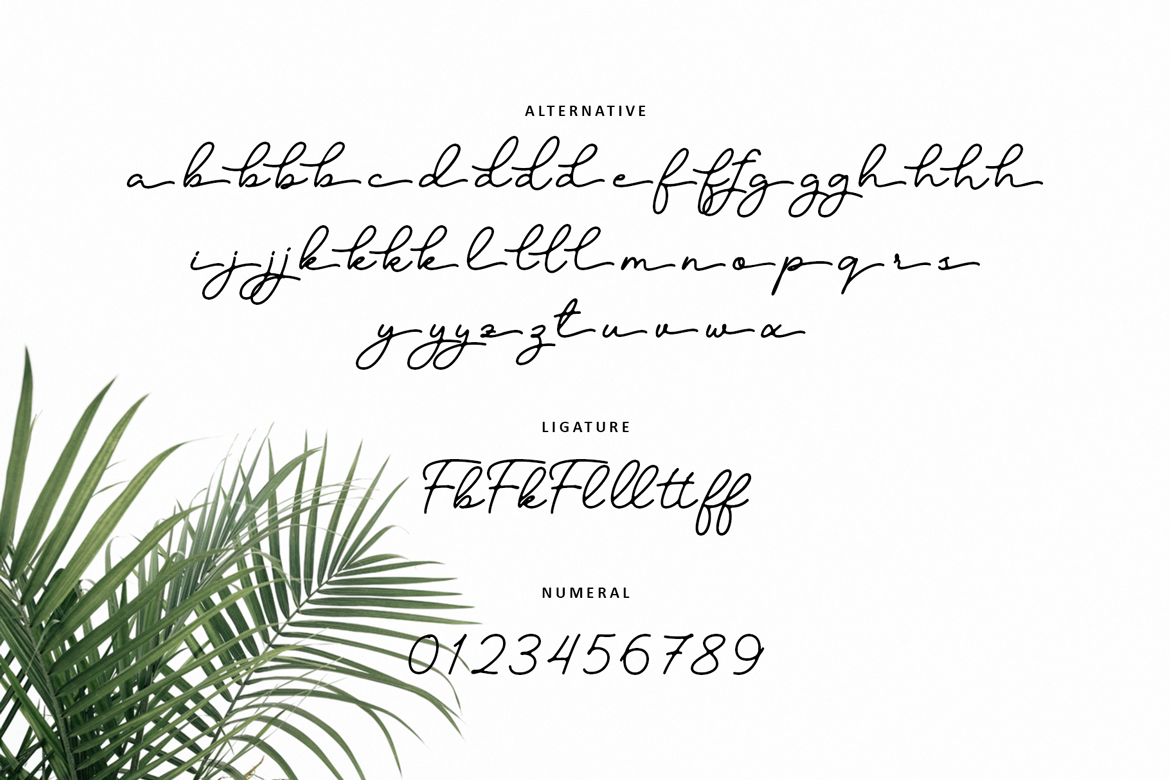 ALTERNATIVE
abbbbcddddefffggghhhh
ijjjkkkklllmnopqrs
yyyzztuvwx
LIGATURE
FbFkFlllttff
NUMERAL
0123456789